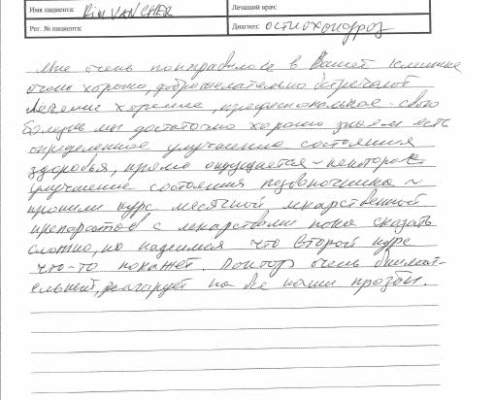 Имя пациента: Kim VAN CHER
Лечащий врач:
Рег. № пациента:
Диагноз: остиохондроз
Мне очень понравилось в Вашей клинике
очень хорошо, доброжелательно встречают
Лечение хорошее, професиональное свою
мы достаточно хорошо знаем есть
определенное улучшение состояния
здоровья, прямо ощущается некоторое
улучшение состояния позвоночника
прошли курс месячной лекарственной
препаратов с лекарствами пока сказать
сложно, но надеимся что второй курс
что-то покажет. Доктор очень внимат-
ельный, реагирует на все наши прозбы.